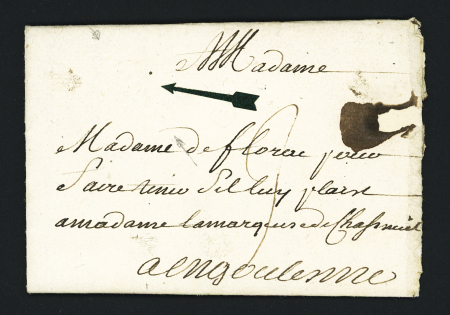 Madame
Madame de florac pour
faire tenir sil luy plaist
a madame la marquise de Chasneuil
a engoulesme